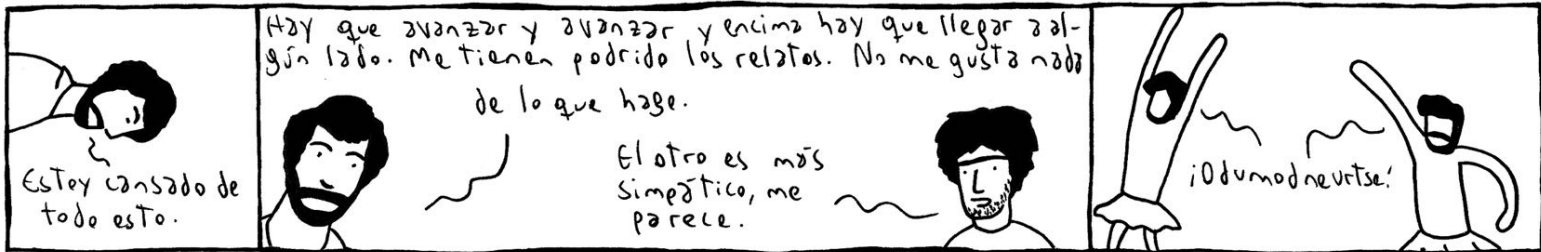 Estoy cansado de
todo esto.
Hay que avanzar y avanzar y encima hay que llegar a al-
gún lado. Me tienen podrido los relatos. No me gusta nada
de lo que hago.
El otro es más
simpático, me
parece.
¡Odumodneurtse!